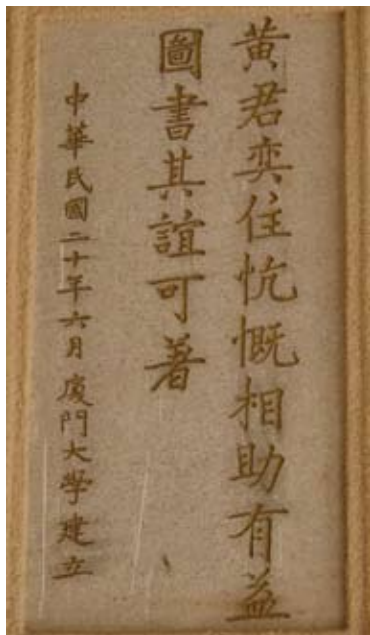 黄君奕住忼慨相助有益
圖書其誼可著
中華民國二十年六月廈門大學建立